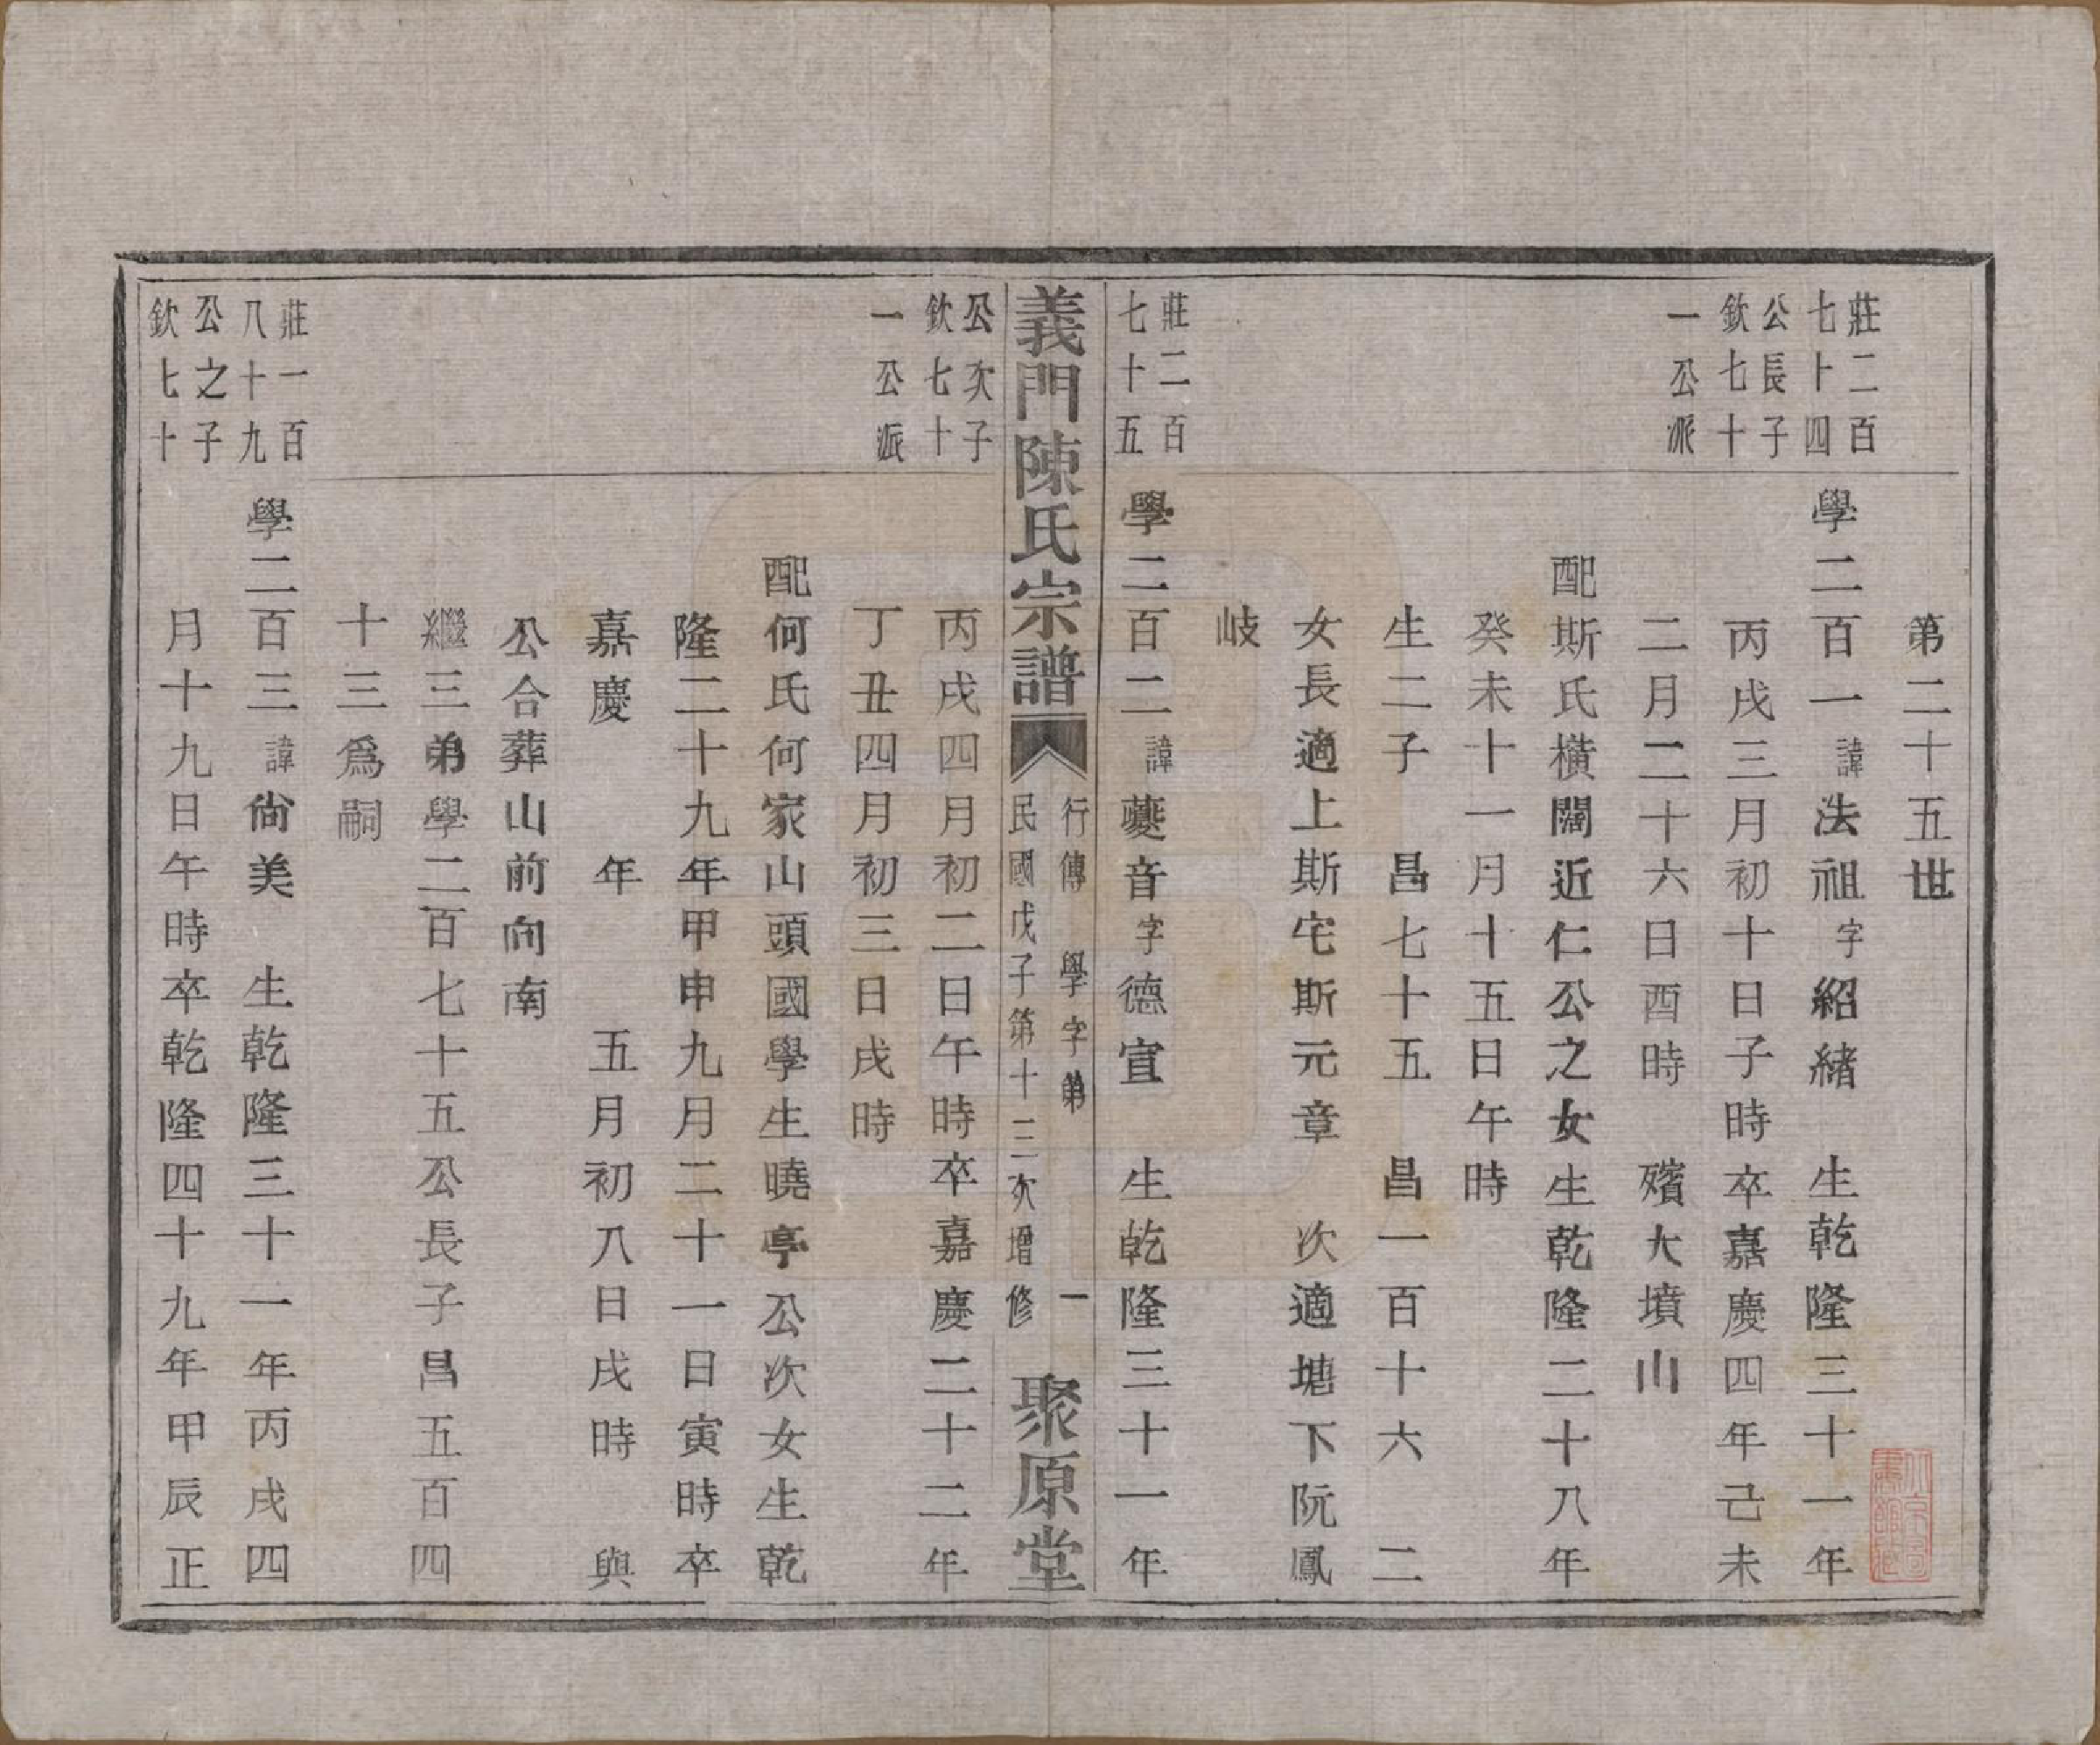 第二十五世
莊二百
七十四
公長子
欽七十
一公派
學二百一諱法祖字紹緒　生乾隆三十一年
丙戌三月初十日子時卒嘉慶四年己未
二月二十六日酉時　殯大墳山
配斯氏橫闊近仁公之女生乾隆二十八年
癸未十一月十五日午時
生二子　昌七十五　昌一百十六　二
女長適上斯宅斯元章　次適塘下阮鳳
岐
莊二百
七十五
學二百二諱夔音字德宣　生乾隆三十一年
義門陳氏宗譜
行傳　學字弟　一
民國戊子第十三次增修
聚原堂
公次子
欽七十
一公派
丙戌四月初二日午時卒嘉慶二十二年
丁丑四月初三日戌時
配何氏何家山頭國學生曉亭公次女生乾
隆二十九年甲申九月二十一日寅時卒
嘉慶　年　五月初八日戌時　與
公合葬山前向南
繼三弟學二百七十五公長子昌五百四
十三爲嗣
莊一百
八十九
公之子
欽七十
學二百三諱尙美　生乾隆三十一年丙戌四
月十九日午時卒乾隆四十九年甲辰正